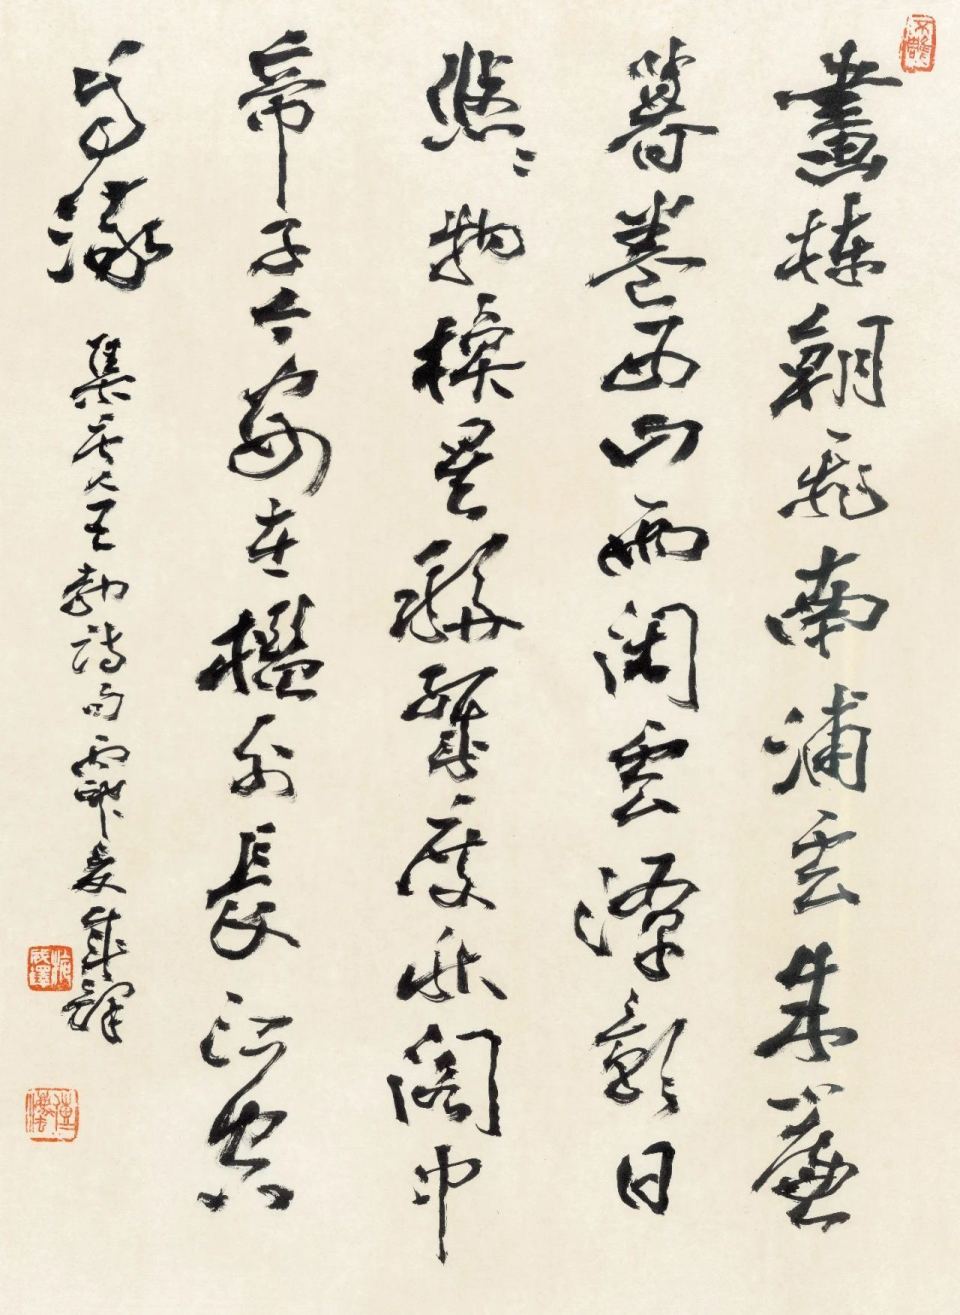 畫棟朝飛南浦雲朱簾
暮卷西山雨閑雲潭影日
悠悠物換星移幾度秋閣中
帝子今安在檻外長江空
自流
集唐人王勃詩句